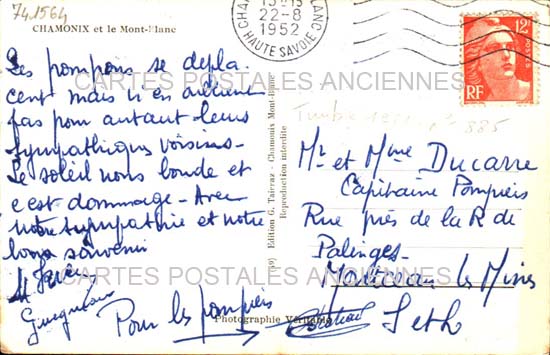 741564
CHAMONIX et le Mont-Blanc
22-8
1952
HAUTE SAVOIE
12F
POSTES
RF
Les pompons se depla
cent mais n'en oublient
pas pour autant leurs
sympathiques voisins-
Le soleil nous boude et
c'est dommage - Avec
notre sympathie et notre
bon souvenir
Pour les pompiers
CARTES POSTALES ANCIENNES
CARTES POSTALES ANCIENNES
(9) Edition G. Tairraz - Chamonix Mont-Blanc
Reproduction interdite
Timbre 885
Mr et Mme Ducarre
Capitaine Pompiers
Rue près de la R de
Palinges-
Montceau les Mines
S et L
Photographie Véritable